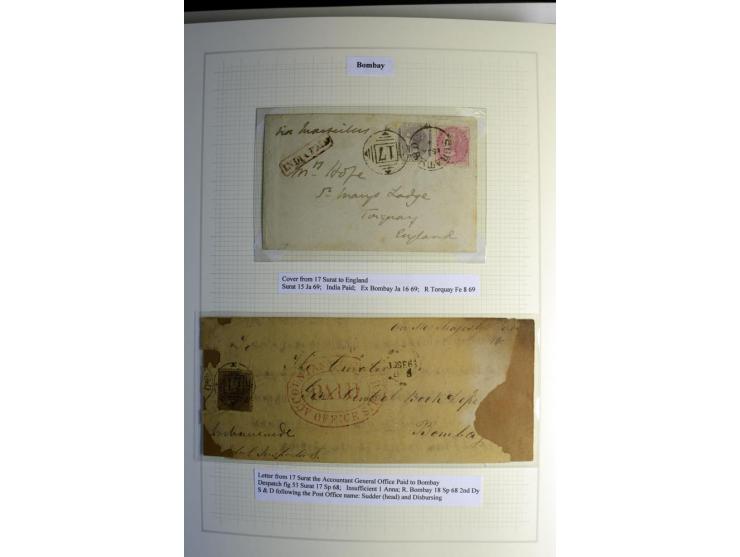 Bombay
via Marseilles
INDIA PAID
17
SURAT
Mrs Hope
St Marys Lodge
Torquay
England
Cover from 17 Surat to England
Surat 15 Ja 69; India Paid; Ex Bombay Ja 16 69; R Torquay Fe 8 69
The Curator
17
PAID
OFFICE
Book Depo
Bombay
Letter from 17 Surat the Accountant General Office Paid to Bombay
Despatch fig 53 Surat 17 Sp 68; Insufficient 1 Anna; R. Bombay 18 Sp 68 2nd Dy
S & D following the Post Office name: Sudder (head) and Disbursing